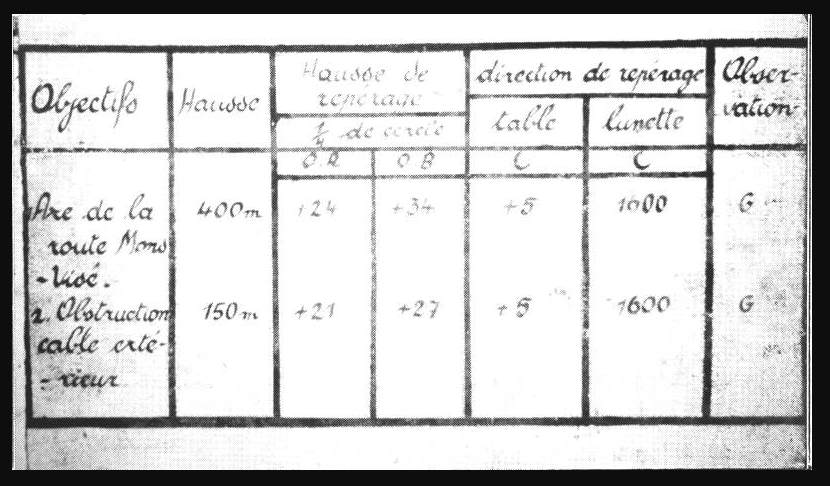 Objectifs Hausse Hausse de repérage direction de repérage Obser-
vation
1/4 de cercle table lunette
O.R O B C C
Axe de la 400m +24 +34 +5 1600 G
route Mons
-Visé.
2. Obstruction 150m +21 +27 +5 1600 G
cable exté-
-rieur